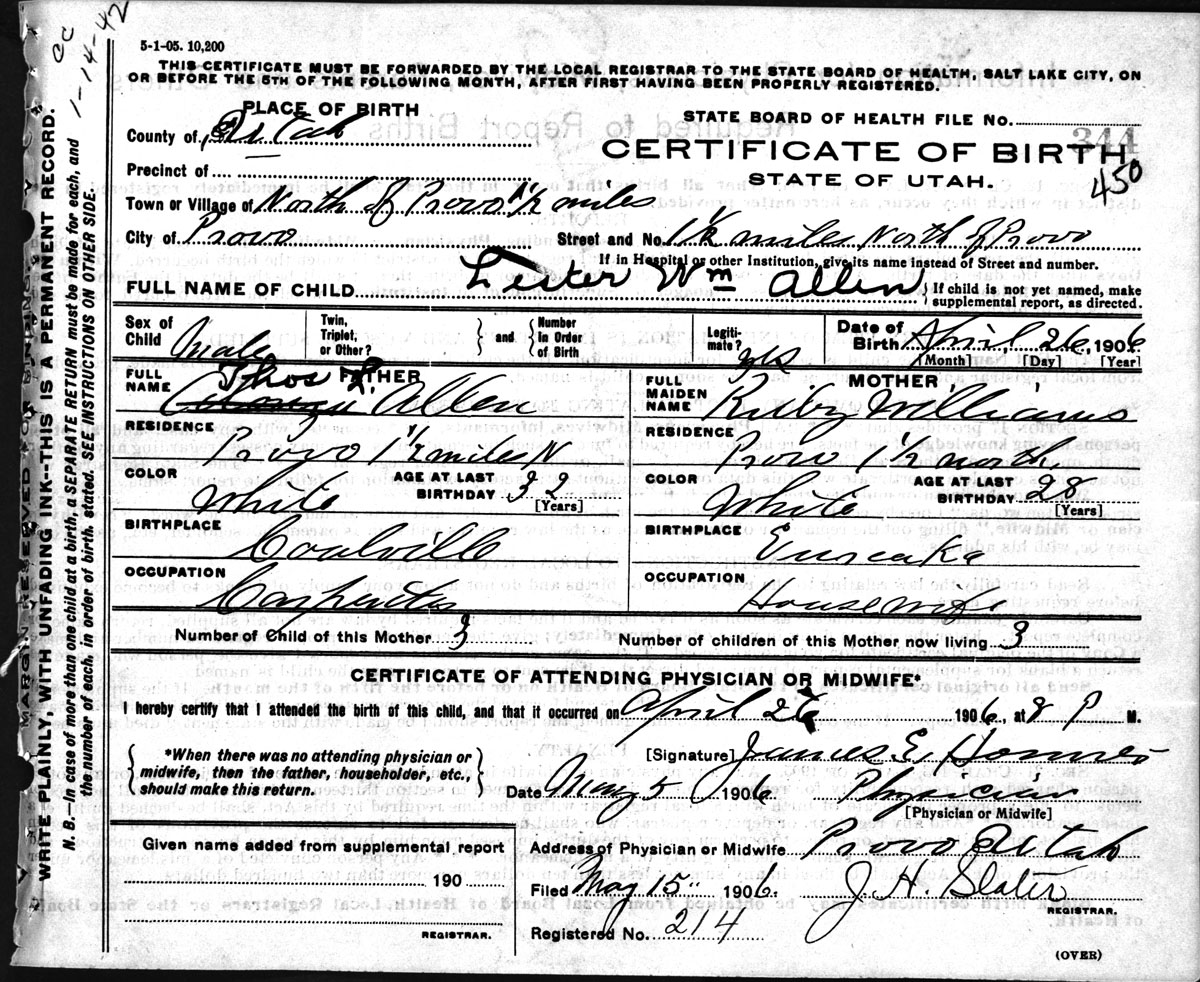 5-1-05. 10,200
THIS CERTIFICATE MUST BE FORWARDED BY THE LOCAL REGISTRAR TO THE STATE BOARD OF HEALTH, SALT LAKE CITY, ON
OR BEFORE THE 5TH OF THE FOLLOWING MONTH, AFTER FIRST HAVING BEEN PROPERLY REGISTERED.
cc
1-14-42
MARGIN RESERVED FOR BINDING
WRITE PLAINLY, WITH UNFADING INK--THIS IS A PERMANENT RECORD.
N. B.—In case of more than one child at a birth, a SEPARATE RETURN must be made for each, and
the number of each, in order of birth, stated. SEE INSTRUCTIONS ON OTHER SIDE.
PLACE OF BIRTH
County of Utah
Precinct of
Town or Village of North of Provo 1½ miles
City of Provo
STATE BOARD OF HEALTH FILE NO. 344
CERTIFICATE OF BIRTH
450
STATE OF UTAH.
Street and No. 1½ miles North of Provo
If in Hospital or other Institution, give its name instead of Street and number.
FULL NAME OF CHILD Lester Wm Allen
If child is not yet named, make
supplemental report, as directed.
Sex of Child Male
Twin, Triplet, or Other?
and
Number in Order of Birth
Legiti-mate? yes
Date of Birth April, 26, 1906
[Month] [Day] [Year]
FATHER
FULL NAME Thos Allen
RESIDENCE Provo 1½ miles N
COLOR White
AGE AT LAST BIRTHDAY 32
[Years]
BIRTHPLACE Coalville
OCCUPATION Carpenter
MOTHER
FULL MAIDEN NAME Ruby Williams
RESIDENCE Provo 1½ north
COLOR White
AGE AT LAST BIRTHDAY 28
[Years]
BIRTHPLACE Eureka
OCCUPATION Housewife
Number of Child of this Mother 3
Number of children of this Mother now living 3
CERTIFICATE OF ATTENDING PHYSICIAN OR MIDWIFE*
I hereby certify that I attended the birth of this child, and that it occurred on April 26 1906, at 8 P M.
*When there was no attending physician or
midwife, then the father, householder, etc.,
should make this return.
[Signature] James E.
Date May 5 1906. Physician
[Physician or Midwife]
Given name added from supplemental report
190
REGISTRAR.
Address of Physician or Midwife Provo Utah
Filed May 15" 1906. J. H. Slater
REGISTRAR.
Registered No. 214
(OVER)